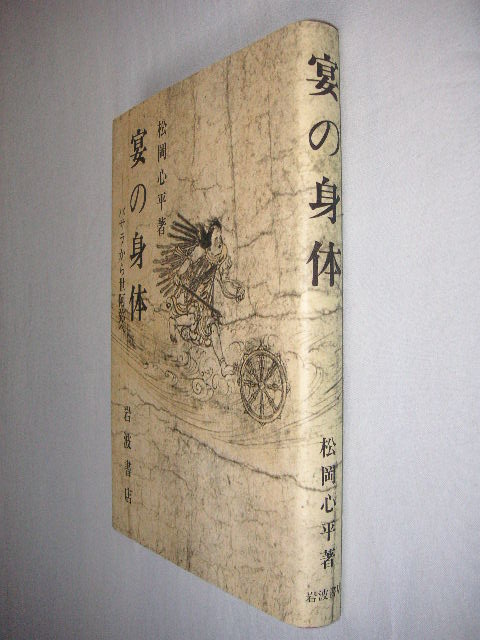 松岡心平著
宴の身体
バサラから世阿弥へ
岩波書店
宴の身体
松岡心平著
岩波書店